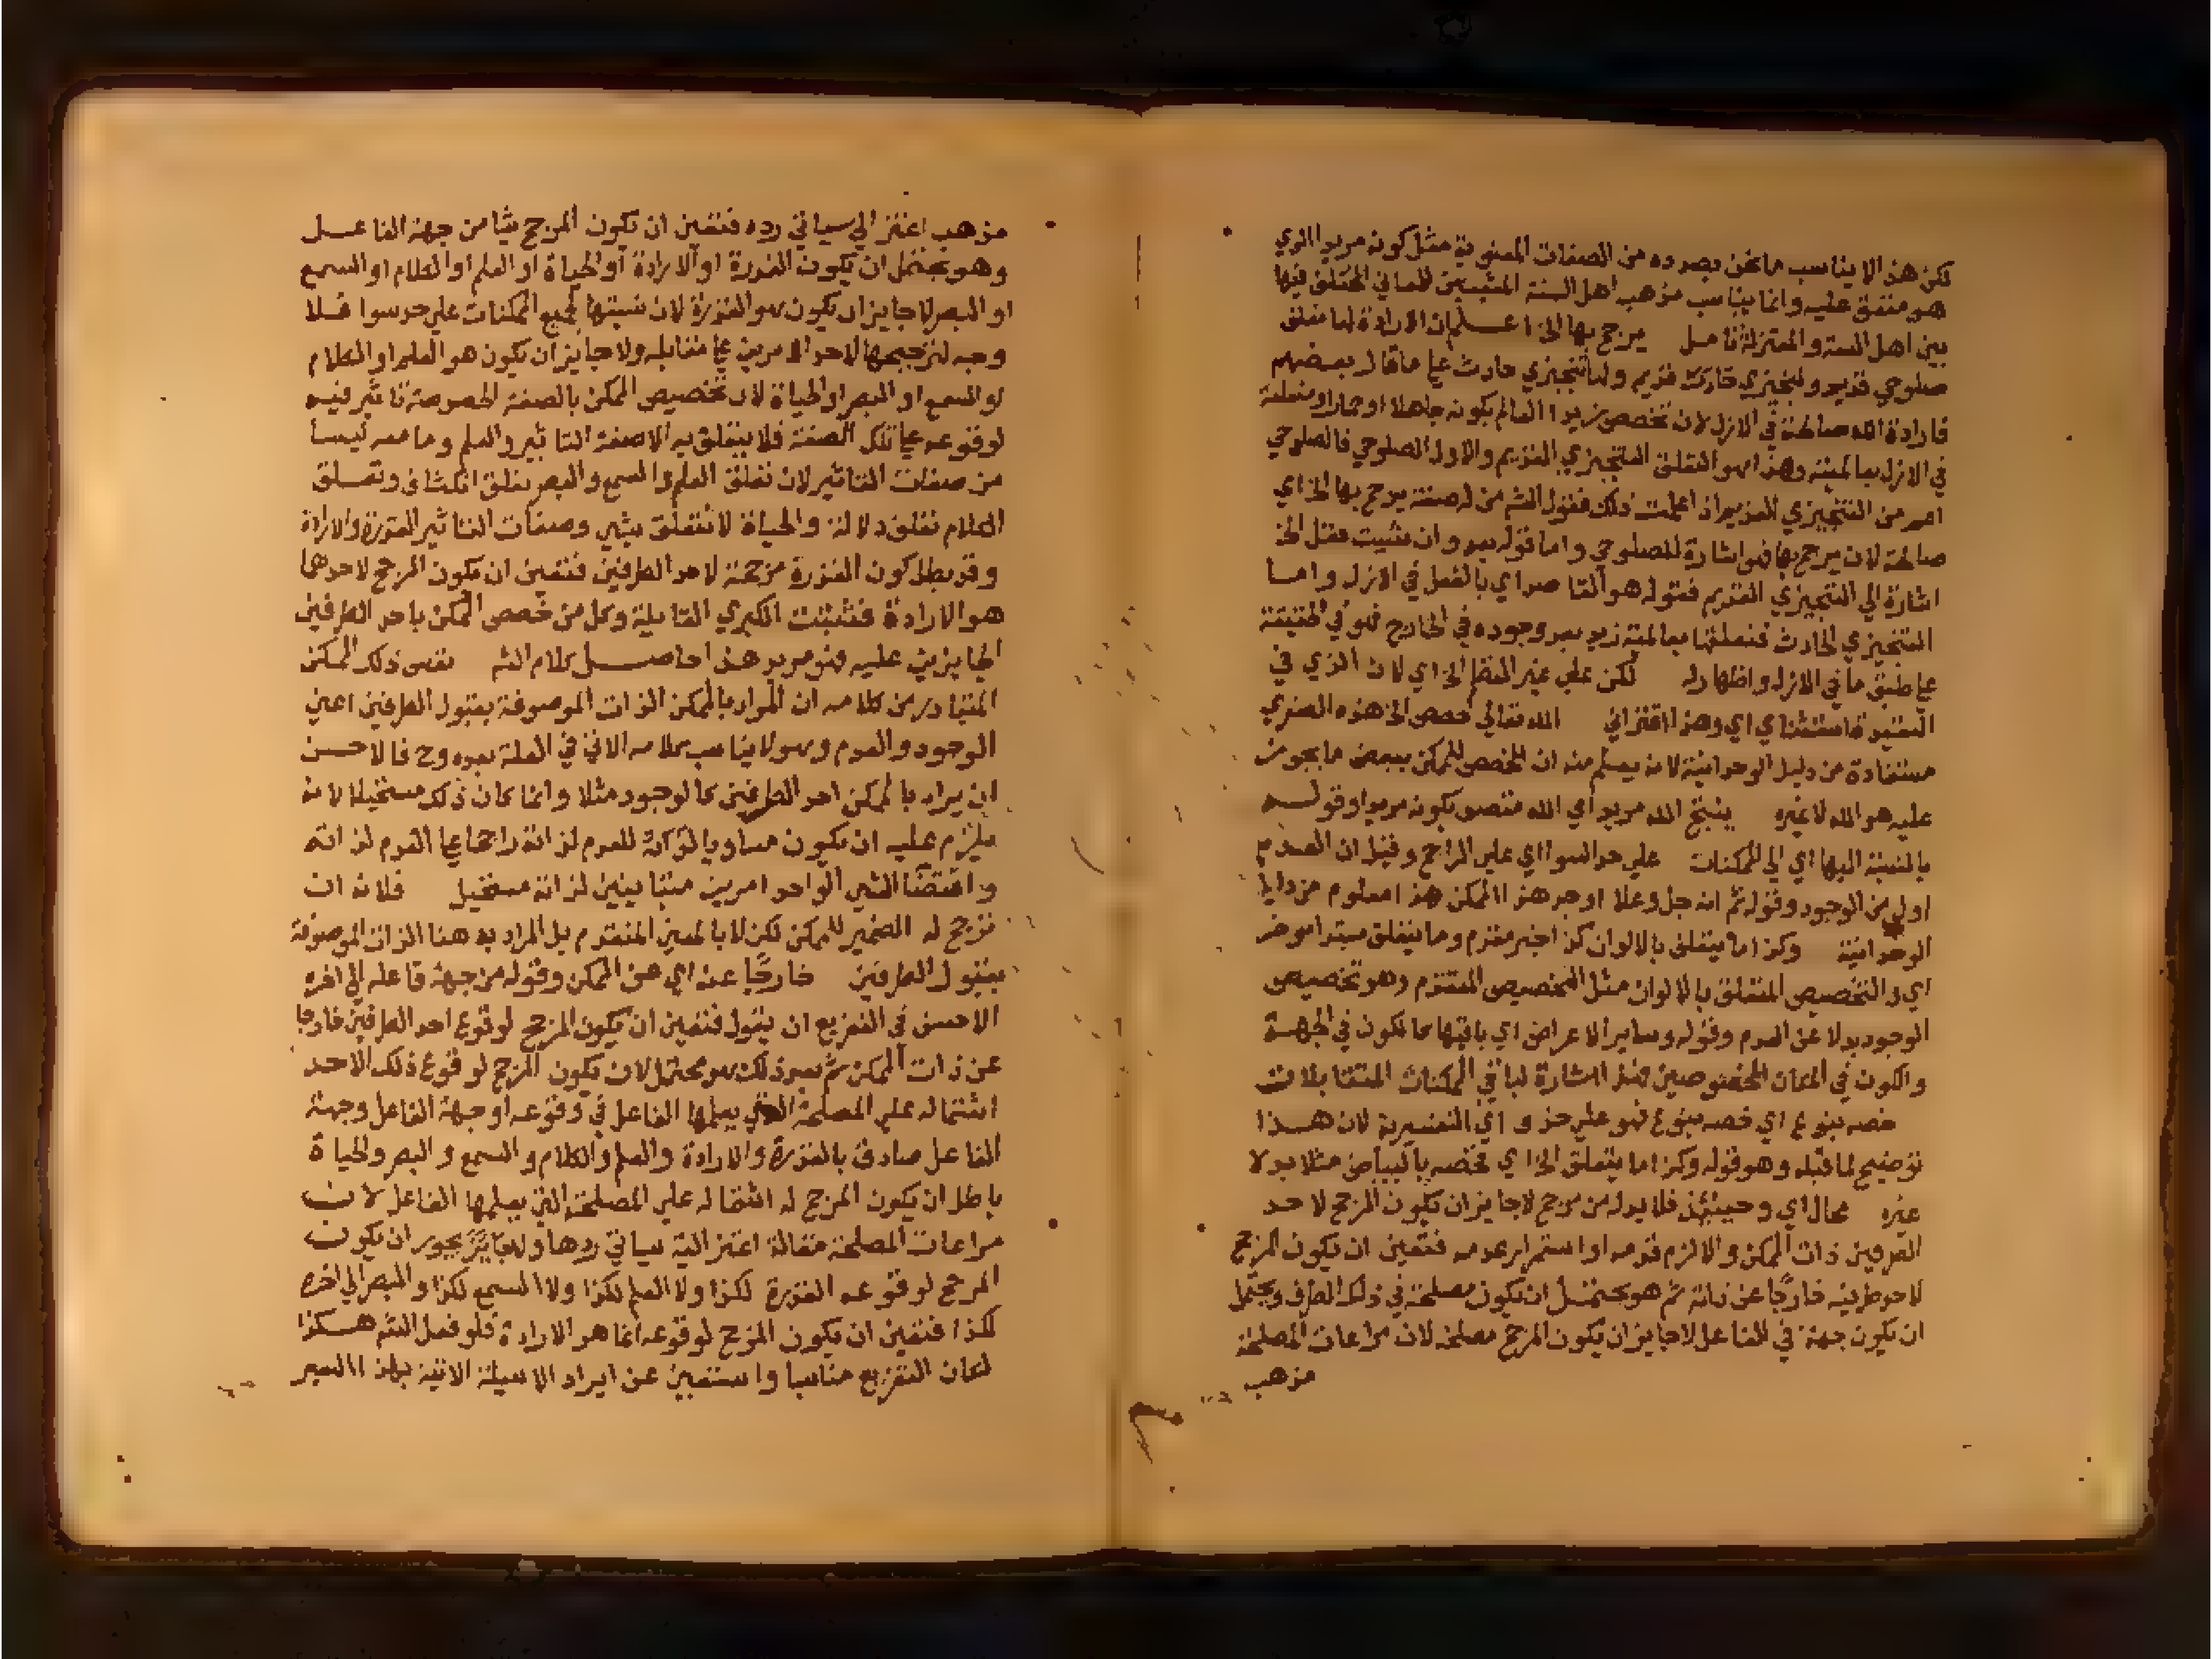 لكن هذا لا يناسب ما نحن بصدده من الصفات المعنوية مثل كونه مريدا الذي
هو متفق عليه وانما يناسب مذهب اهل السنة المثبتين للمعاني المختلف فيها
بين اهل السنة والمعتزلة تامل يرجح بها الخ اعلم ان الارادة لها تعلق
صلوحي قديم وتنجيزي قديم ولها تنجيزي حادث علي ما قال بعضهم
فارادة الله صالحة في الازل لان تخصص زيدا العالم بكونه جاهلا او حمارا ومتعلقة
في الازل بعالميته وهذا هو التعلق التنجيزي القديم والاول الصلوحي فالصلوحي
اعم من التنجيزي القديم اذا علمت ذلك فقول الشم من له صفة يرجح بها الخ اي
صالحة لان يرجح بها فهو اشارة للصلوحي واما قوله بعد وان شيت فقل الخ
اشارة الي التنجيزي القديم فقوله هو القاصد اي بالفعل في الازل واما
التنجيزي الحادث فتعلقها بعالمية زيد بعد وجوده في الخارج فهو في الحقيقة
علي طبق ما في الازل واظهار له لكن علي غير النظم الخ اي لان الذي في
العقيدة استثنائي اي وهذا اقتراني الله تعالي خصص الخ هذه الصغري
مستفادة من دليل الوحدانية لانه يعلم منه ان المخصص للممكن ببعض ما يجوز
عليه هو الله لا غيره ينتج الله مريد اي الله متصف بكونه مريدا وقوله
بالنسبة اليها اي الي الممكنات علي حد السوا اي علي الراجح وقيل ان العدم
اولي من الوجود وقوله ثم انه جل وعلا اوجد هذا الممكن هذا معلوم من دليل
الوحدانية وكذا ما يتعلق بالالوان كذا خبر مقدم وما يتعلق مبتدا موخر
اي والتخصيص المتعلق بالالوان مثل التخصيص المتقدم وهو تخصيص
الوجود بدلا عن العدم وقوله وساير الاعراض اي باقيها كالكون في الجهة
والكون في المكان المخصوصين فهذا اشارة لباقي الممكنات المتقابلات
خصه بنوع اي خصه بنوع فهو علي حذف اي التفسيرية لان هذا
توضيح لما قبله وهو قوله وكذا ما يتعلق الخ اي تخصه بالبياض مثلا بدلا
غيره محال اي وحينئذ فلا بد له من مرجح لا جايز ان يكون المرجح لاحد
الطرفين ذات الممكن والا لزم قدمه او استمرار عدمه فتعين ان يكون المرجح
لاحد طرفيه خارجا عن ذاته ثم هو يحتمل ان يكون مصلحة في ذلك الطرف ويحتمل
ان يكون جهة في الفاعل لا جايز ان يكون المرجح مصلحة لان مراعات المصلحة
مذهب
مذهب اعتزالي سياتي رده فتعين ان يكون المرجح شيا من جهة الفاعل
وهو يحتمل ان يكون القدرة او الارادة او الحياة او العلم او الكلام او السمع
او البصر لا جايز ان يكون هو القدرة لان نسبتها لجميع الممكنات علي حد سوا فلا
وجه لترجيحها لاحد الامرين علي مقابله ولا جايز ان يكون هو العلم او الكلام
او السمع او البصر او الحياة لان تخصيص الممكن بالصفة المخصوصة تاثير فيه
لوقوعه علي تلك الصفة فلا يتعلق به الا صفة التاثير والعلم وما معه ليسا
من صفات التاثير لان تعلق العلم والسمع والبصر تعلق انكشاف وتعلق
الكلام تعلق دلالة والحياة لا تتعلق بشي وصفات التاثير القدرة والارادة
وقد بطل كون القدرة مرجحة لاحد الطرفين فتعين ان يكون المرجح لاحدهما
هو الارادة فثبتت الكبري القايلة وكل من خصص الممكن باحد الطرفين
الجايزين عليه فهو مريد هذا حاصل كلام الشم نفس ذلك الممكن
المتبادر من كلامه ان المراد بالممكن الذات الموصوفة بقبول الطرفين اعني
الوجود والعدم وهو لا يناسب كلامه الاتي في العلة بعده وح فالاحسن
ان يراد بالممكن احد الطرفين كالوجود مثلا وانما كان ذلك مستحيلا لانه
يلزم عليه ان يكون مساويا لذاته للعدم لذاته راجحا علي العدم لذاته
واقتضا الشي الواحد امرين متباينين لذاته مستحيل فلانه ان
ترجح له الضمير للممكن لكن لا بالمعني المتقدم بل المراد به هنا الذات الموصوفة
بقبول الطرفين خارجا عنه اي عن الممكن وقوله من جهة فاعله الي اخره
الاحسن في التفريع ان يقول فتعين ان يكون المرجح لوقوع احد الطرفين خارجا
عن ذات الممكن ثم بعد ذلك هو محتمل لان يكون المرجح لوقوع ذلك الاحد
اشتماله علي المصلحة التي يعلمها الفاعل في وقوعه او جهة الفاعل وجهة
الفاعل صادق بالقدرة والارادة والعلم والكلام والسمع والبصر والحياة
باطل ان يكون المرجح له اشتماله علي المصلحة التي يعلمها الفاعل لان
مراعات المصلحة مقالة اعتزالية سياتي ردها ولا جايز ان يكون
المرجح لوقوعه القدرة لكذا ولا العلم لكذا ولا السمع لكذا والبصر الي اخره
لكذا فتعين ان يكون المرجح لوقوعه انما هو الارادة فلو فعل الشم هكذا
لكان التفريع مناسبا واستغني عن ايراد الاسيلة الاتية بهذا السبر